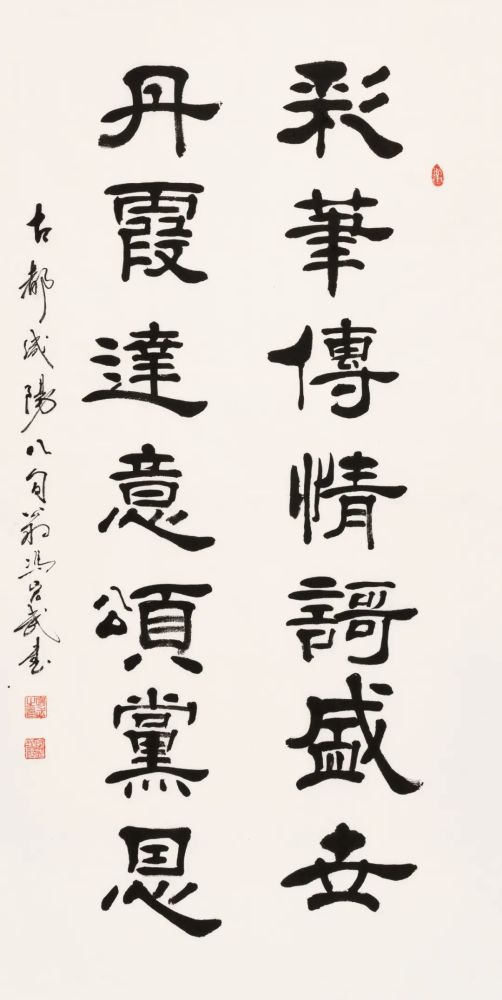 彩筆傳情謌盛世
丹霞達意頌黨恩
古都咸陽八旬翁馮武書